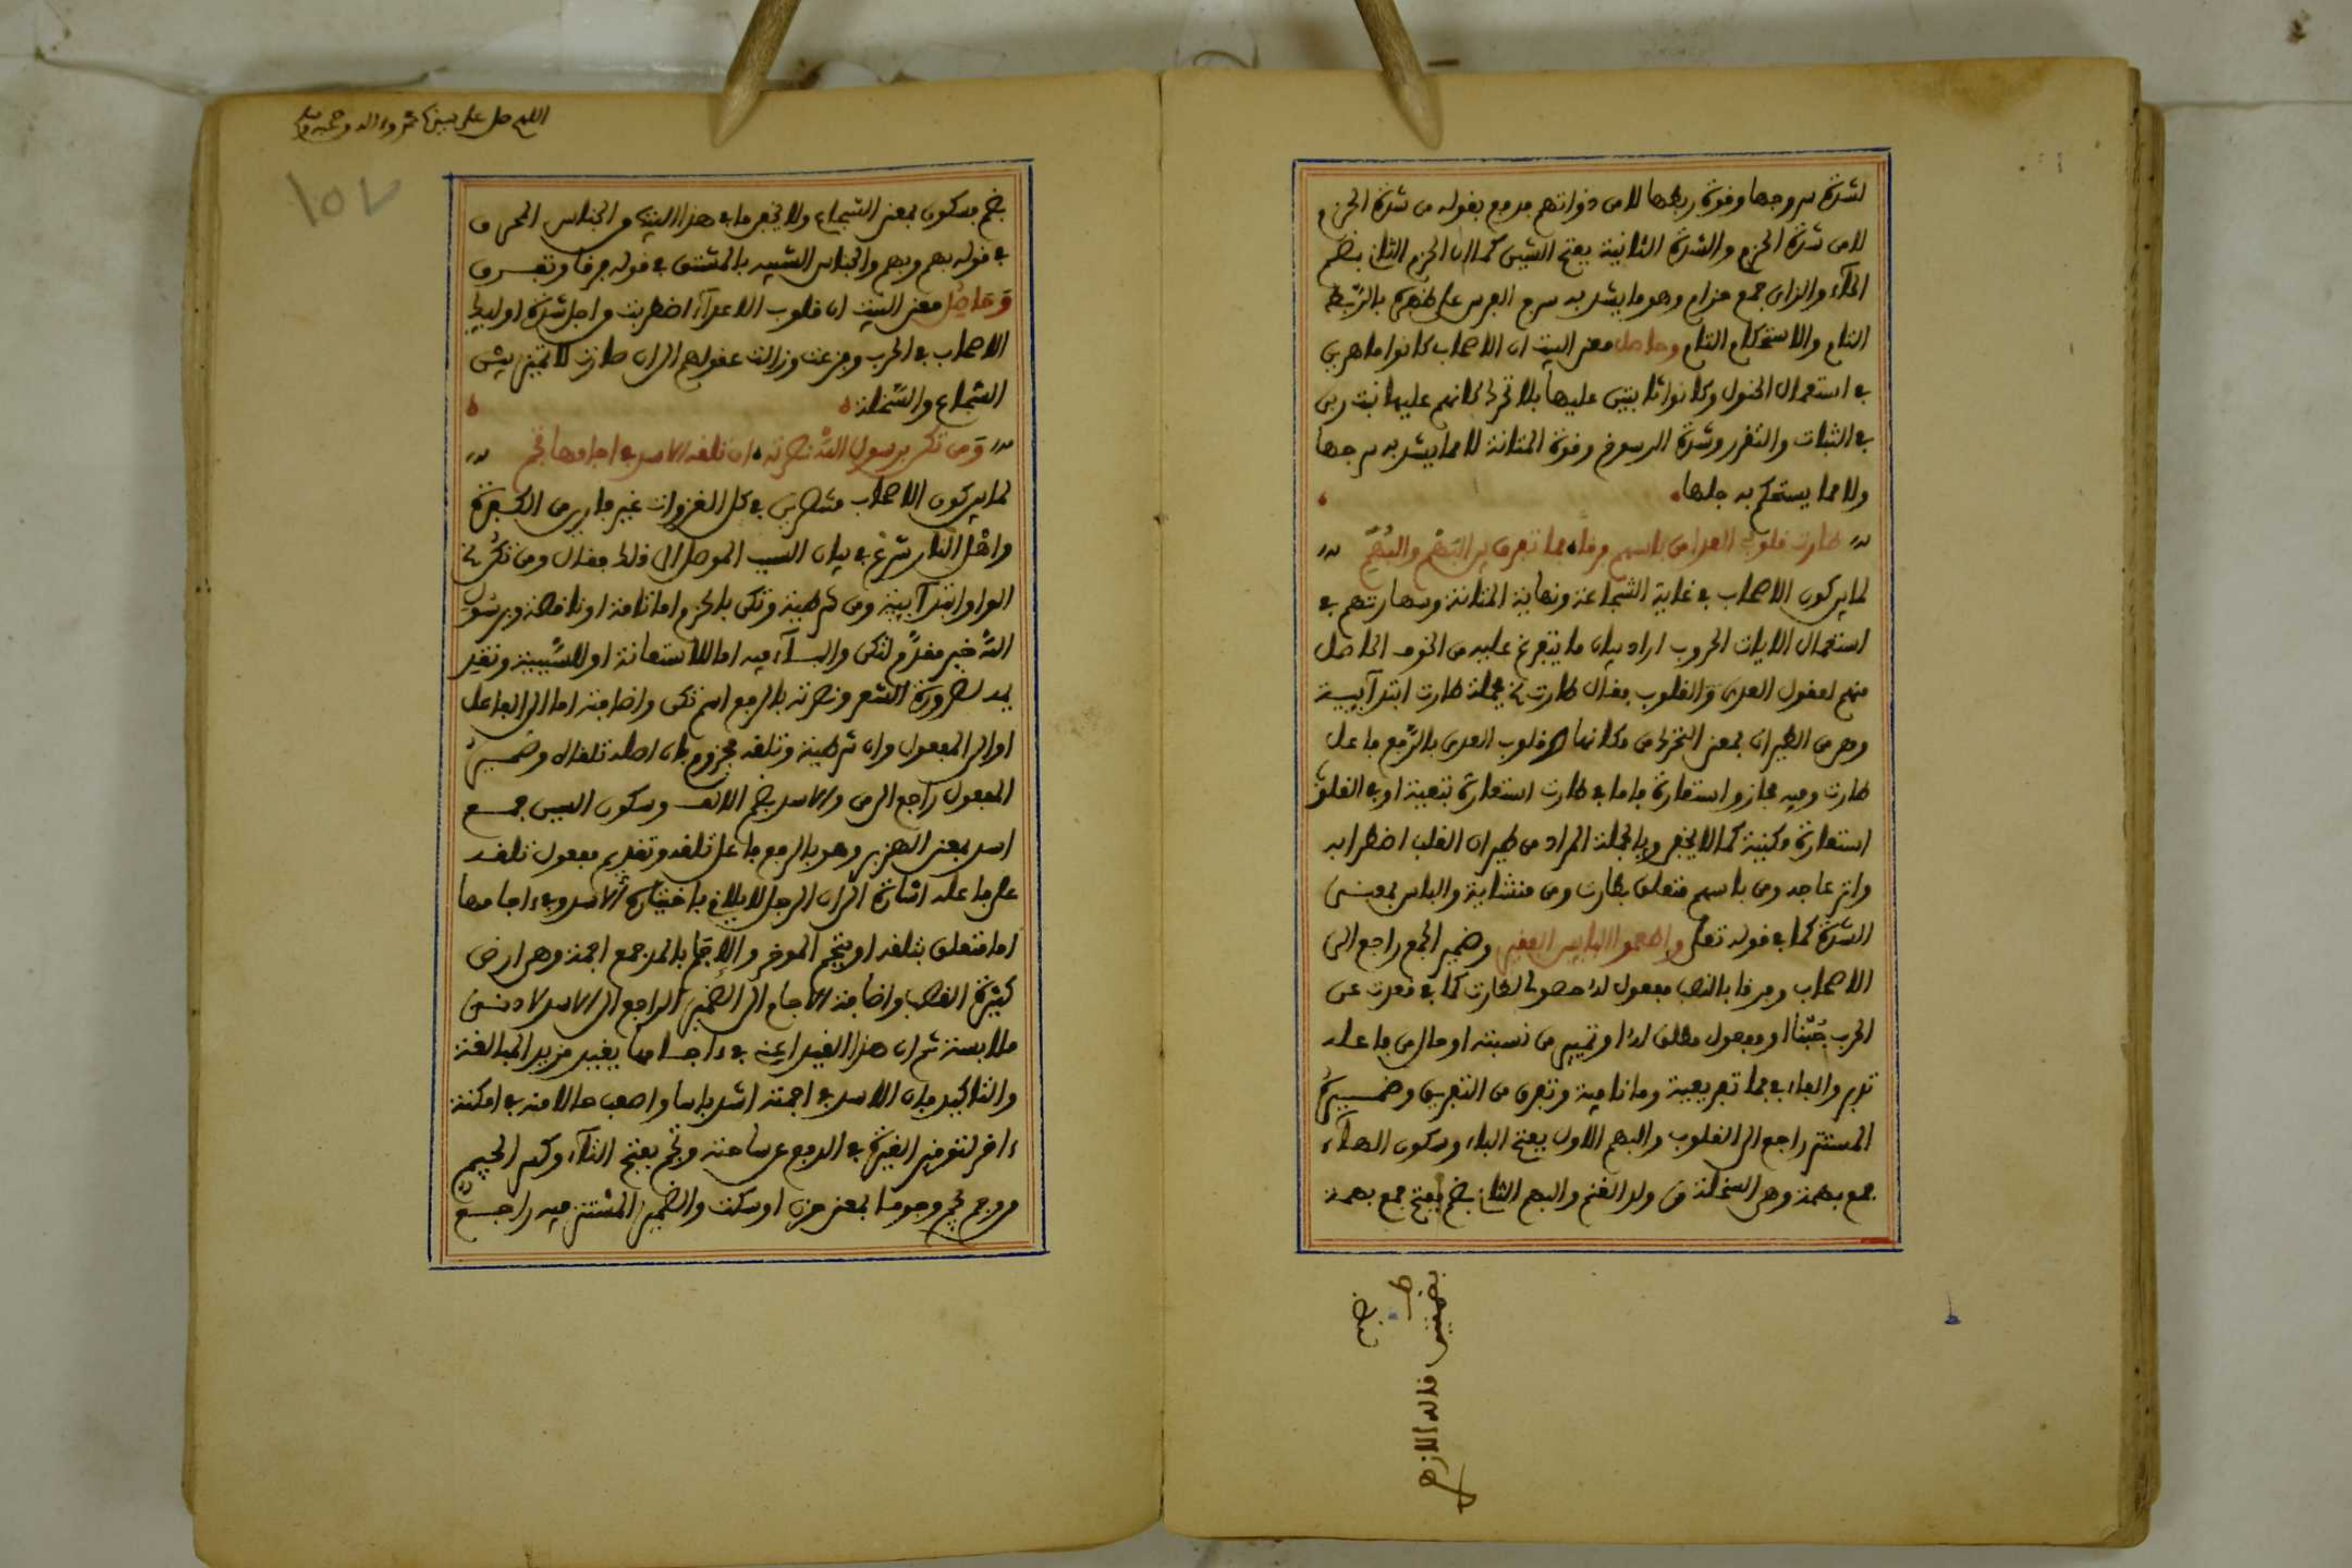 لشدة سروجها وقوة ربطها لا من ذواتهم فدفع بقوله من شدة الحزم
لا من شدة الحزم والشدة الثانية بفتح الشين كما ان الحزم الثاني بضم
الحاء والزاي جمع حزام وهو ما يشد به سرج الفرس على ظهره بالربط
التام والاستحكام التام وحاصل معنى البيت ان الاصحاب كانوا ماهرين
في استعمال الخيول وكانوا ثابتين عليها بلا تحرك كانهم عليها نبت ربى
في الثبات والتقرر وشدة الرسوخ وقوة المتانة لا مما يشد به سرجها
ولا مما يستحكم به جلها
طارت قلوب العدا من باسهم فرقا فما تفرق بين البهم والبهم
لما يركون الاصحاب في غاية الشجاعة ونهاية المتانة ومهارتهم في
استعمال الايات الحروب اراد بيان ما يتفرع عليه من الخوف الحاصل
منهم لعقول العدى والقلوب فقال طارت جملة طارت ابتدآئية
وهي من الطيران بمعنى التحرك من مكانها قلوب العدى بالرفع فاعل
طارت وفيه مجاز واستعارة فاما في طارت استعارة تبعية او في القلوب
استعارة مكنية كما لا يخفى وبالجملة المراد من طيران القلب اضطرابه
وانزعاجه ومن باسهم متعلق بطارت ومن منشاية والباس بمعنى
الشدة كما في قوله تعلى واطعموا البايس الفقير وضمير الجمع راجع الى
الاصحاب وفرقا بالنصب مفعول له حصولي لطارت كما في قعدت عن
الحرب جبنا او مفعول مطلق له او تمييز من نسبته او حال من فاعله
تدبر والفاء في فما تفريعية وما نافية وتفرق من التفريق وضميره
المستتر راجع الى القلوب والبهم الاول بفتح الباء وسكون الهاء
جمع بهمة وهي السخلة من ولد الغنم والبهم الثاني بضم بفتح جمع بهمة
بضمتين قاله الازهري
اللهم صل على نبينا محمد واله وصحبه
١٥٧
بضم بسكون بمعنى الشجاع ولا يخفى ما في هذا البيت من الجناس المحرف
في قوله بهم وبهم والجناس الشبيه بالمشتق في قوله فرقا وتفرق
وحاصل معنى البيت ان قلوب الاعدآء اضطربت من اجل شدة اولئك
الاصحاب في الحرب وفزعت وزالت عقولهم الى ان صارت لا تميز بين
الشجاع والسخلة
ومن تكن برسول الله نصرته ان تلقه الاسد في اجامها تجم
لما يركون الاصحاب منتصرين في كل الغزوات غير فارين من الكفرة
واهل النار شرع في بيان السبب الموصل الى ذلك فقال ومن تكن
الواو ابتدآئية ومن شرطية وتكن بالجزم اما تامة او ناقصة وبرسول
الله خبر مقدم لتكن والباء فيه اما للاستعانة او للسببية وتقدير
يمد لضرورة الشعر ونصرته بالرفع اسم تكن واضافته اما الى الفاعل
او الى المفعول وان شرطية وتلقه مجزوم فان اصله تلقاه وضمير
المفعول راجع الى من والاسد بضم الالف وسكون السين جمع
اسد بمعنى الهزبر وهو بالرفع فاعل تلقه وتقديم مفعول تلقه
على فاعله اشارة الى ان الرجل لا يلاقي باختياره الاسد وفي اجامها
اما متعلق بتلقه او بتجم الموخر والاجام بالمد جمع اجمة وهي ارض
كثيرة القصب واضافة الاجام الى الضمير الراجع الى الاسد لادنى
ملابسة ثم ان هذا القيد اعني في اجامها يفيد مزيد المبالغة
والتاكيد فان الاسد في اجمته اشد باسا واصعب حالا منه في امكنة
اخر لتوفير الغيرة في الدفع عن ساحته وتجم بفتح التآء وكسر الجيم
من وجم يجم وجوما بمعنى حزن او سكت والضمير المستتر فيه راجع